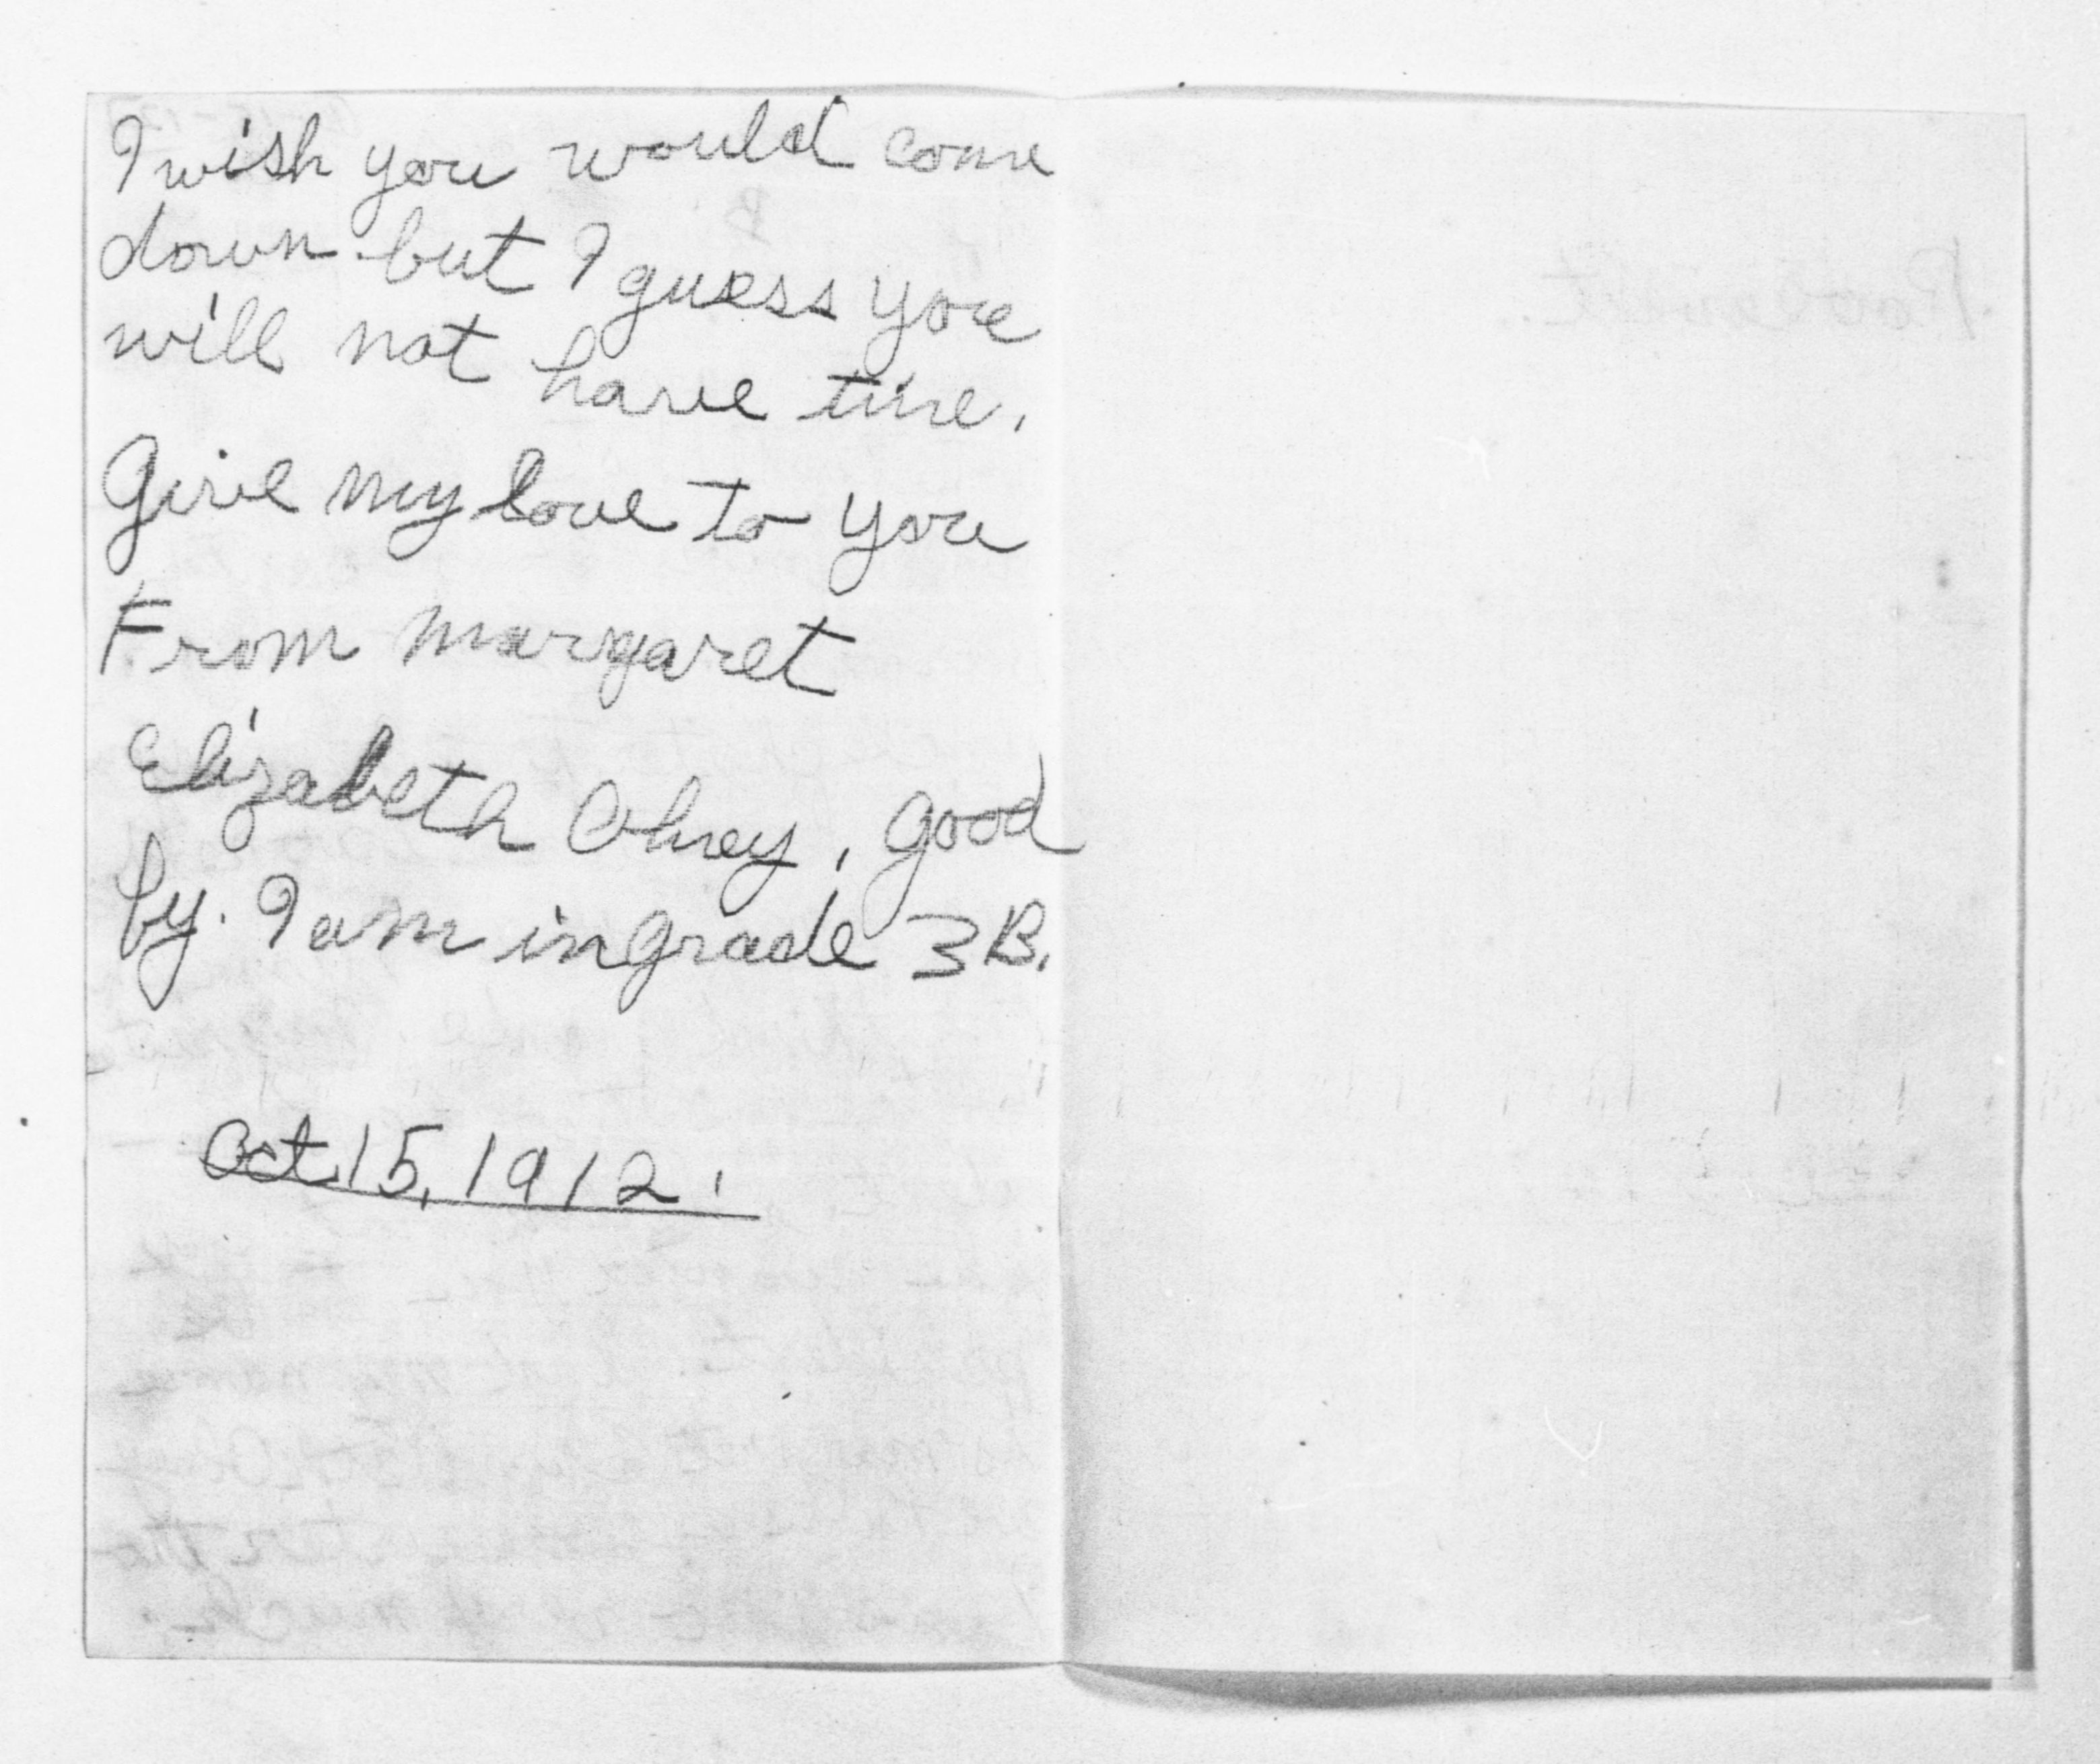 I wish you would come
down but I guess you
will not have time.
Give my love to you
From Margaret
Elizabeth Olney, good
by. I am in grade 3B.
Oct 15, 1912.